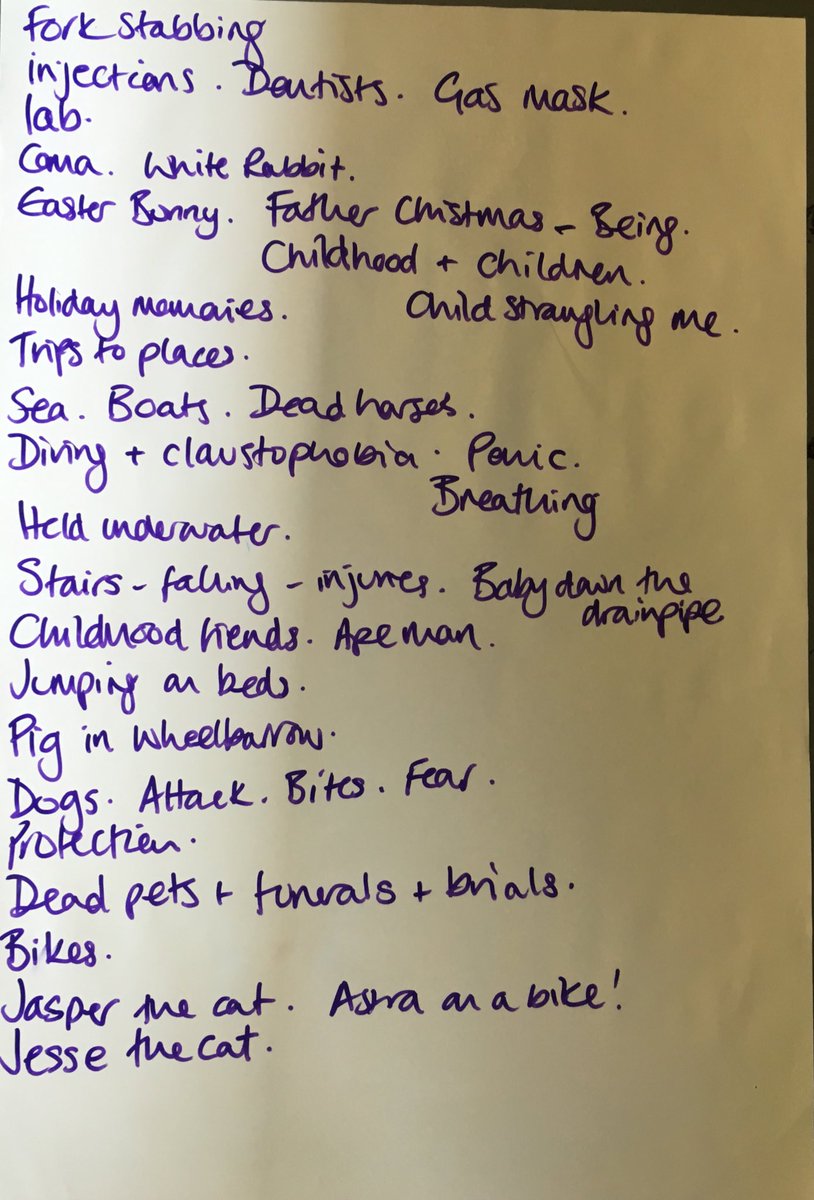 Fork Stabbing
injections. Dentists. Gas mask.
lab.
Coma. White Rabbit.
Easter Bunny. Father Christmas - Being.
Childhood + children.
Holiday memories. Child strangling me.
Trips to places.
Sea. Boats. Dead horses.
Diving + claustophobia. Panic.
Breathing
Held underwater.
Stairs - falling - injuries. Baby down the
drainpipe
Childhood friends. Ape man.
Jumping on beds.
Pig in wheelbarrow.
Dogs. Attack. Bites. Fear.
Protection.
Dead pets + funerals + burials.
Bikes.
Jasper the cat. Astra on a bike!
Jesse the cat.